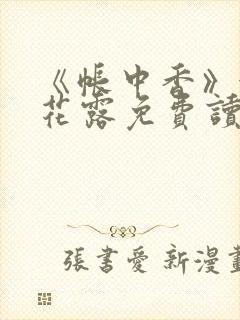 《帳中香》
花露免費讀
張書愛新漫畫